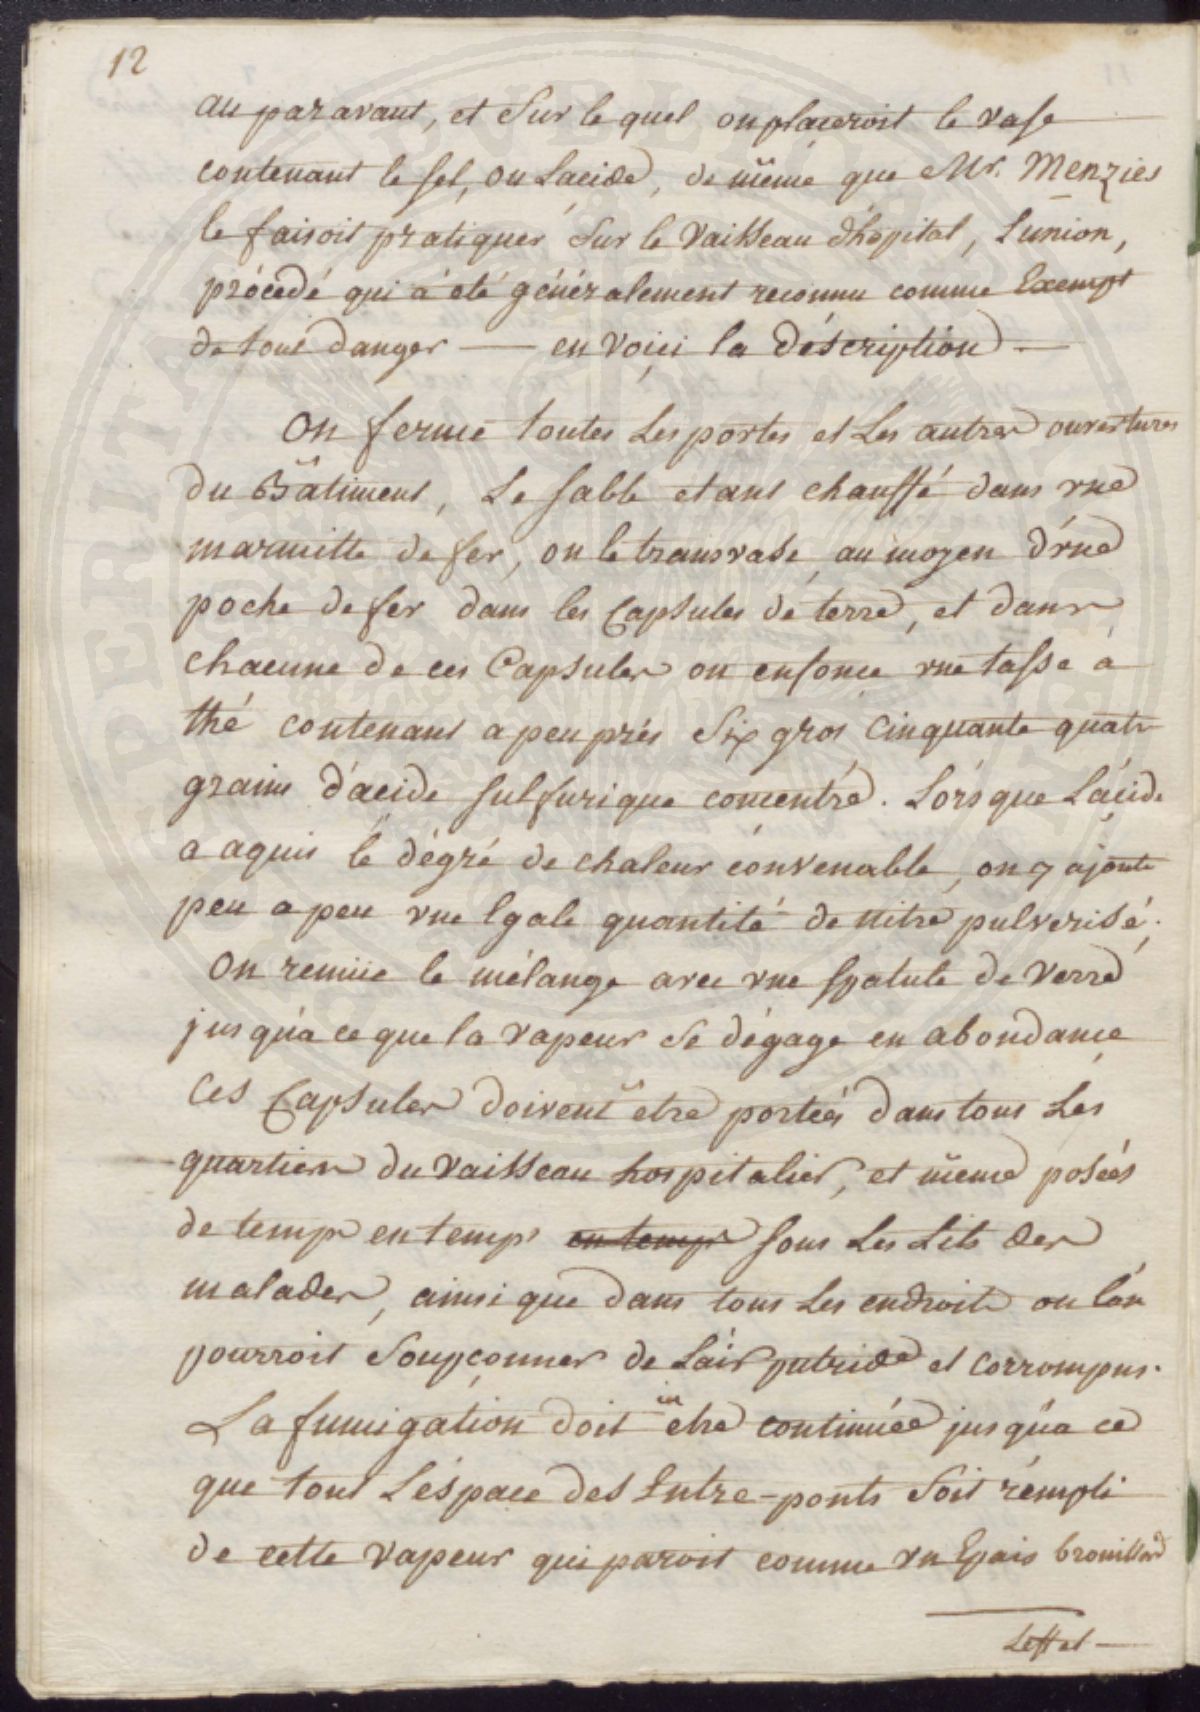 12
au paravant, et sur le quel on placeroit le vase
contenant le sel, ou L'acide, de même que Mr. Menzies
le faisoit pratiquer sur le Vaisseau d'hopital, L'union,
procedé qui à été génèralement reconnu comme Exempt
de tout danger — en Voici la déscription —
On fermè toutes Les portes et Les autres ouvertures
du Bâtiment, Le sable etant chauffé dans vne
marmitte de fer, on le transvase au moyen d'vne
poche de fer dans les Capsules de terre, et dans
chacune de ces Capsules on enfonce vne tasse à
thé contenant a peu près Six gros Cinquante quatr
grains d'acide sulfurique concentré. Lórsque L'acide
a aquis lé dégré de chaleur convenable, on y ajoute
peu a peu vne Egale quantité de nitre pulverisé.
On remüe le mélange avec vne spatule de Verre
jusqu'a ce que la Vapeur se dégage en abondance
Ces Capsules doivent etre porteés dans tous Les
quartiers du Vaisseau hospitalier, et même poseés
de temps en temps en temps sous Les Lits des
malades, ainsi que dans tous Les endroits ou l'on
pourroit soupçonner de L'air putride et corrompus.
La fumigation doit etre continuée jusqu'a ce
que tout L'éspace des Entre-ponts soit rémpli
de cette Vapeur qui paroit comme vn Epais brouillard
L'effet —
PERITAE PVBLICAE